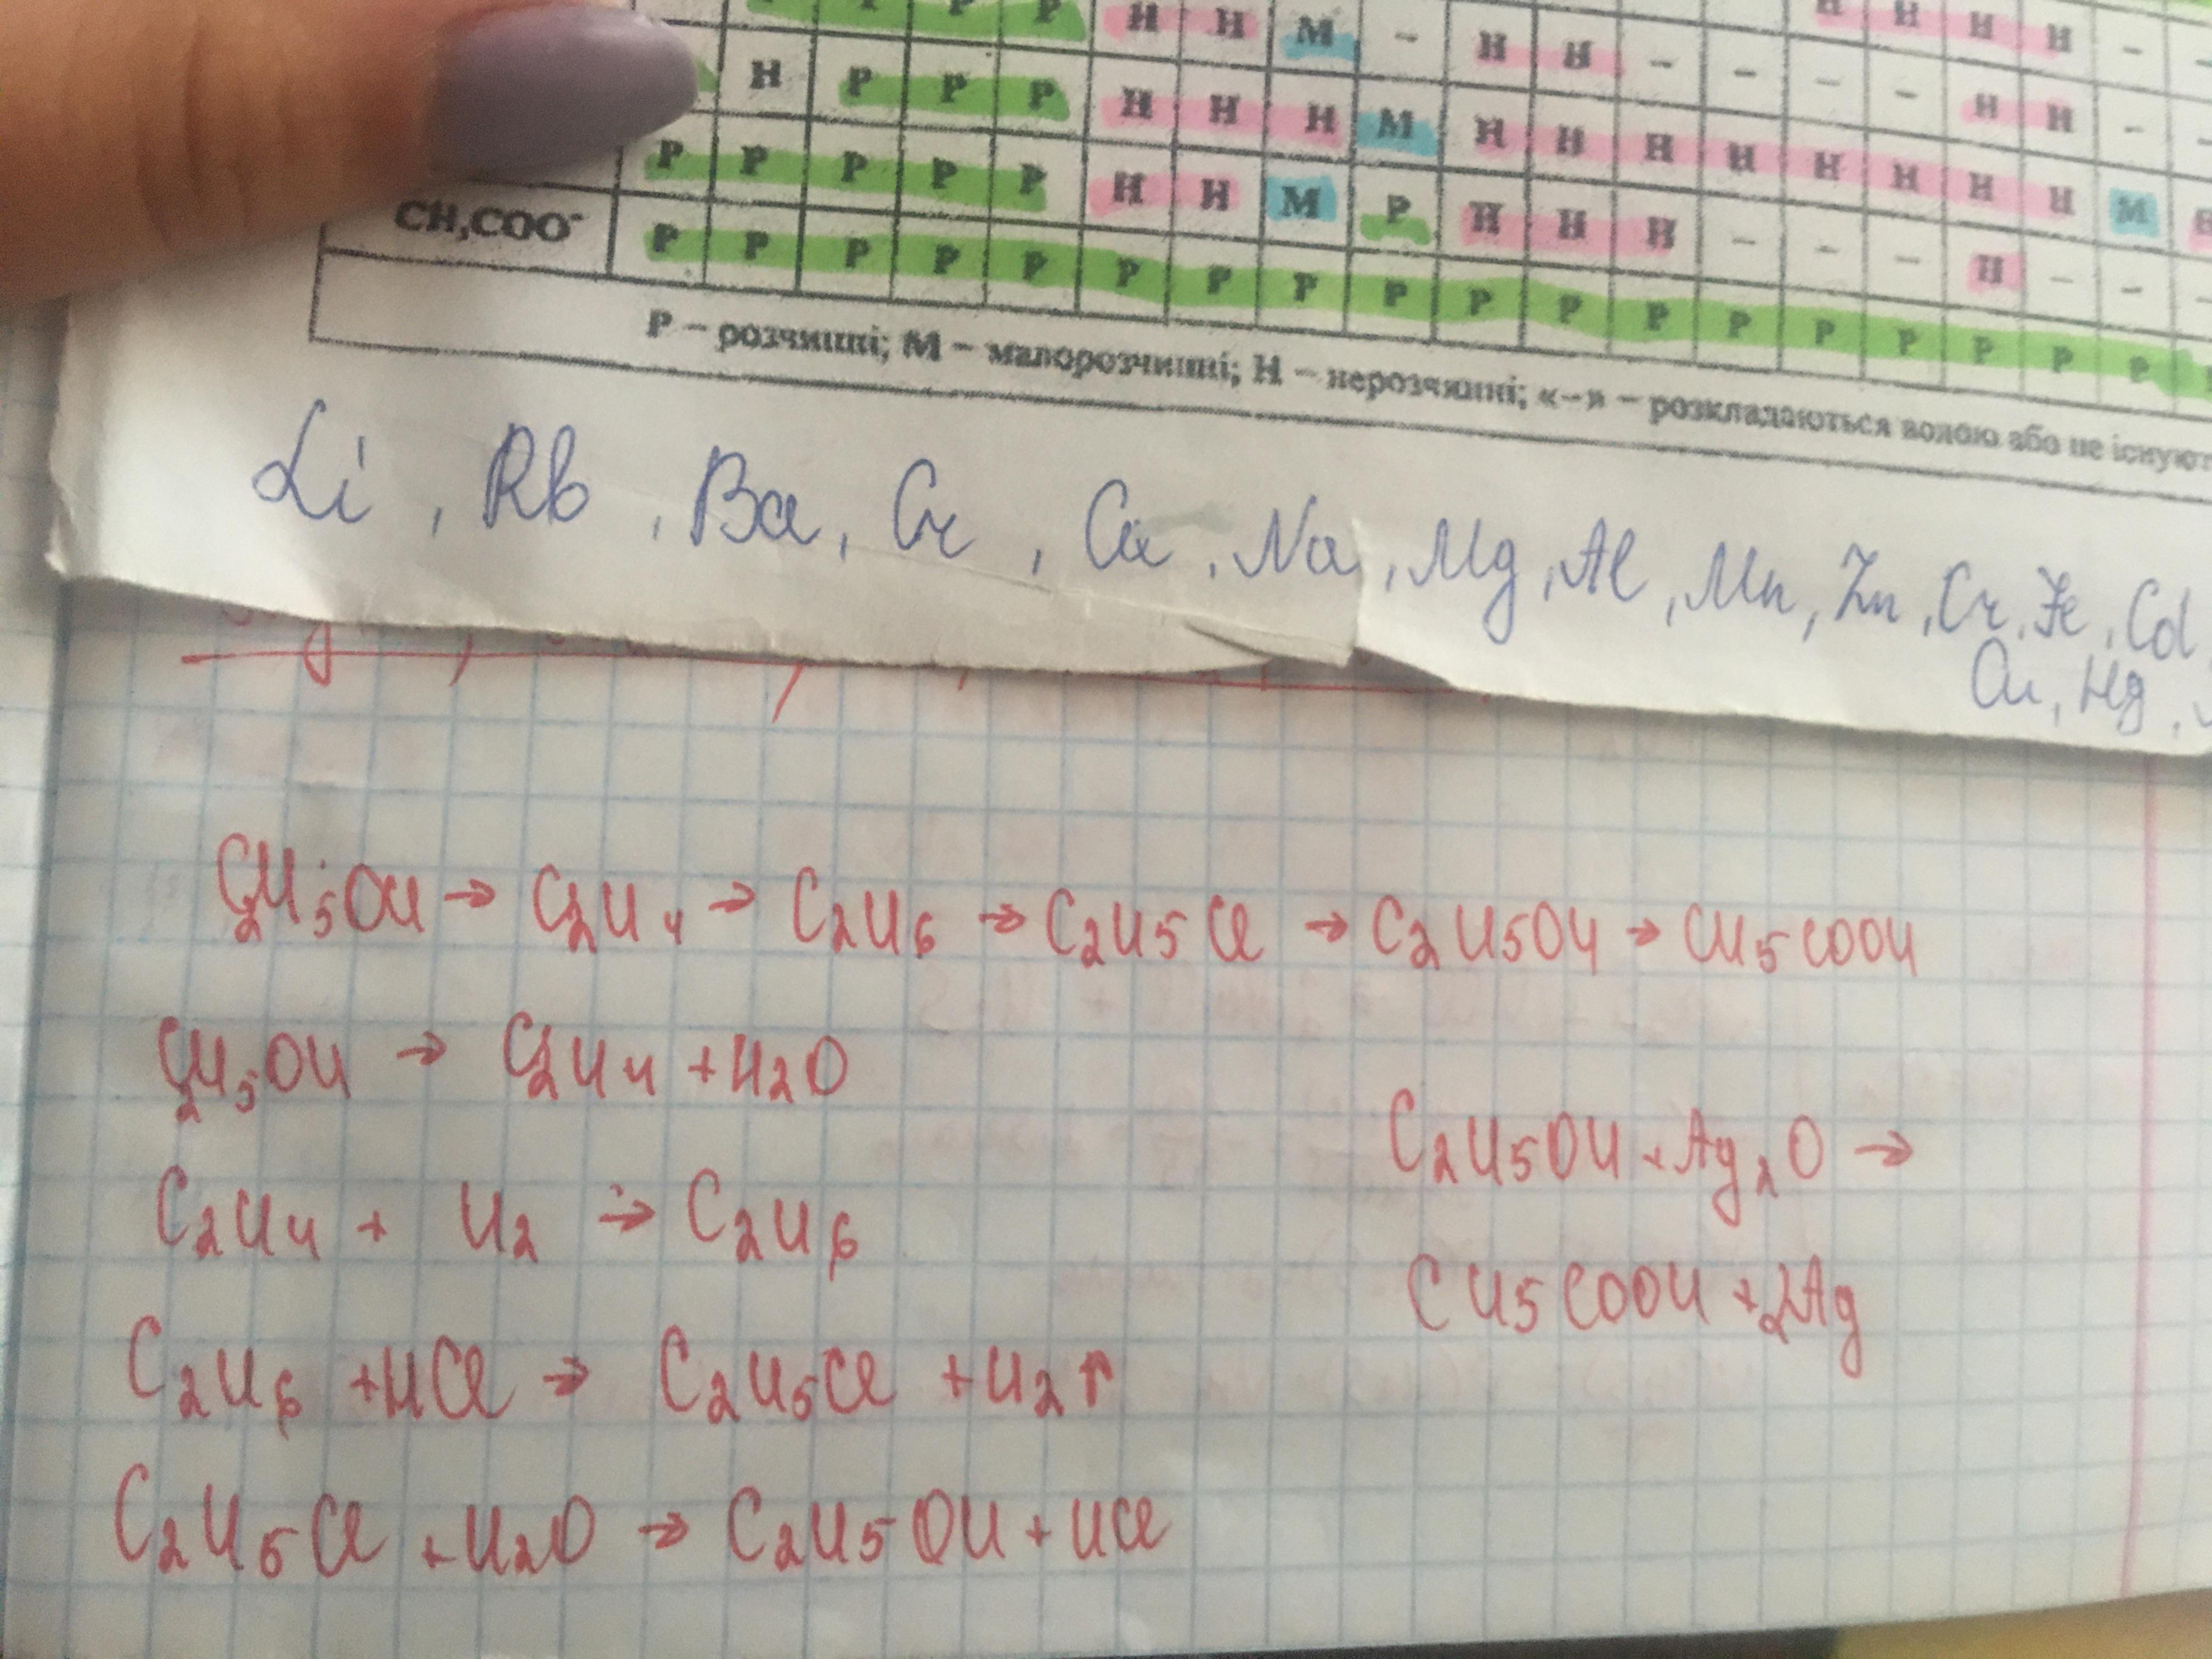 Р Р Н Н М – Н Н – – – – Н Н Н Н –
Н Р Р Р Н Н Н М Н Н Н Н Н Н Н Н М
Р Р Р Р Р Н Н М Р Н Н Н – – – Н – –
CH₃COO⁻ Р Р Р Р Р Р Р Р Р Р Р Р Р Р Р Р Р Р
Р – розчинні; М – малорозчинні; Н – нерозчинні; «–» – розкладаються водою або не існують
Li, Rb, Ba, Cr, Ca, Na, Mg, Al, Mn, Zn, Cr, Fe, Cd,
Cu, Hg,
C₂H₅OH → C₂H₄ → C₂H₆ → C₂H₅Cl → C₂H₅OH → CH₅COOH
C₂H₅OH → C₂H₄ + H₂O
C₂H₄ + H₂ → C₂H₆
C₂H₆ + HCl → C₂H₅Cl + H₂↑
C₂H₅Cl + H₂O → C₂H₅OH + HCl
C₂H₅OH + Ag₂O →
CH₅COOH + 2Ag